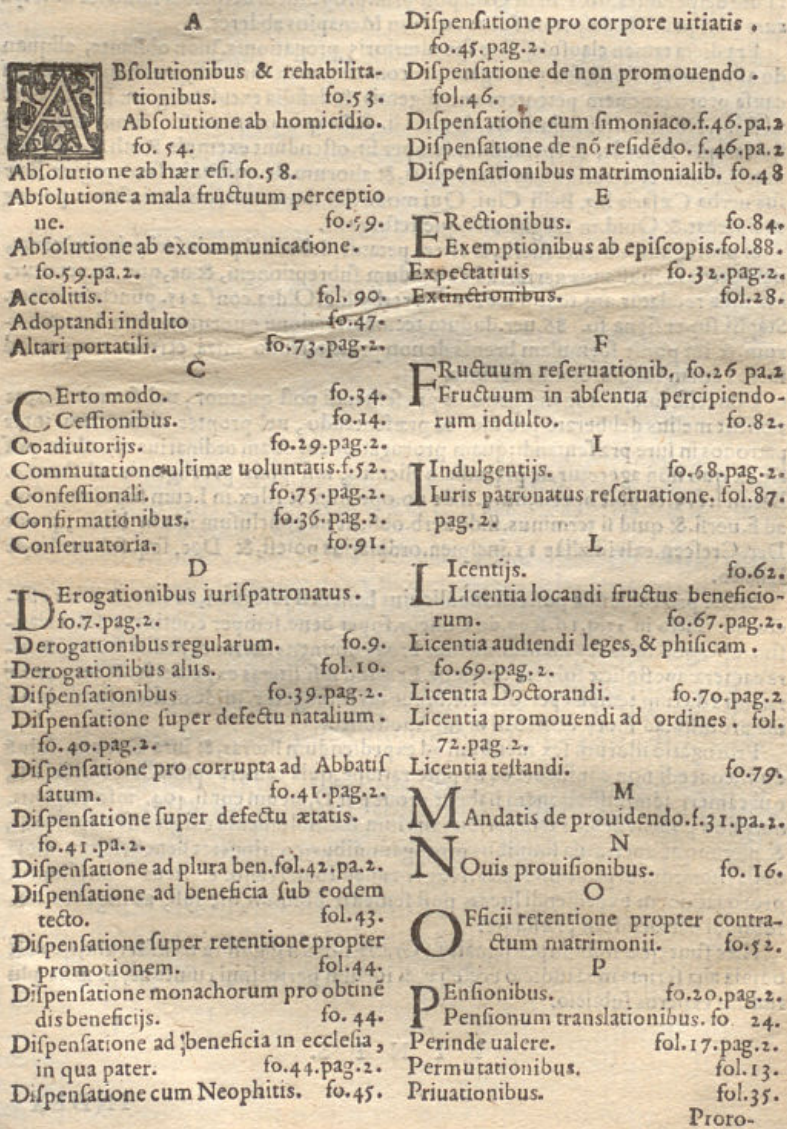 A
ABſolutionibus & rehabilita-
tionibus. fo.53.
Abſolutione ab homicidio.
fo. 54.
Abſolutio ne ab hær eſi. fo.58.
Abſolutione a mala fructuum perceptio
ne. fo.59.
Abſolutione ab excommunicatione.
fo.59.pa.2.
Accolitis. fol. 90.
Adoptandi indulto fo.47.
Altari portatili. fo.73.pag.2.
C
CErto modo. fo.34.
Ceſſionibus. fo.14.
Coadiutorijs. fo.29.pag.2.
Commutatione ultimæ uoluntatis.f.52.
Confeſſionali. fo.75.pag.2.
Confirmationibus. fo.36.pag.2.
Conſeruatoria. fo.91.
D
DErogationibus iuriſpatronatus.
fo.7.pag.2.
Derogationibus regularum. fo.9.
Derogationibus aliis. fol.10.
Diſpenſationibus fo.39.pag.2.
Diſpenſatione ſuper defectu natalium.
fo.40.pag.2.
Diſpenſatione pro corrupta ad Abbatiſ
ſatum. fo.41.pag.2.
Diſpenſatione ſuper defectu ætatis.
fo.41.pa.2.
Diſpenſatione ad plura ben.fol.42.pa.2.
Diſpenſatione ad beneficia ſub eodem
tecto. fol.43.
Diſpenſatione ſuper retentione propter
promotionem. fol.44.
Diſpenſatione monachorum pro obtinẽ
dis beneficijs. fo. 44.
Diſpenſatione ad beneficia in eccleſia,
in qua pater. fo.44.pag.2.
Diſpenſatione cum Neophitis. fo.45.
Diſpenſatione pro corpore uitiatis.
fo.45.pag.2.
Diſpenſatione de non promouendo.
fol.46.
Diſpenſatione cum ſimoniaco.f.46.pa.2
Diſpenſatione de nõ reſidẽdo. f.46.pa.2
Diſpenſationibus matrimonialib. fo.48
E
ERectionibus. fo.84.
Exemptionibus ab epiſcopis.fol.88.
Expectatiuis fo.32.pag.2.
Extinctionibus. fol.28.
F
FRuctuum reſeruationib. fo.26 pa.2
Fructuum in abſentia percipiendo-
rum indulto. fo.82.
I
IIndulgentijs. fo.68.pag.2.
Iuris patronatus reſeruatione. fol.87.
pag. 2.
L
LIcentijs. fo.62.
Licentia locandi fructus beneficio-
rum. fo.67.pag.2.
Licentia audiendi leges, & phiſicam.
fo.69.pag.2.
Licentia Doctorandi. fo.70.pag.2
Licentia promouendi ad ordines. fol.
72.pag.2.
Licentia teſtandi. fo.79.
M
MAndatis de prouidendo.f.31.pa.2.
N
NOuis prouiſionibus. fo. 16.
O
OFficii retentione propter contra-
ctum matrimonii. fo.52.
P
PEnſionibus. fo.20.pag.2.
Penſionum translationibus. fo 24.
Perinde ualere. fol.17.pag.2.
Permutationibus. fol.13.
Priuationibus. fol.35.
Proro-